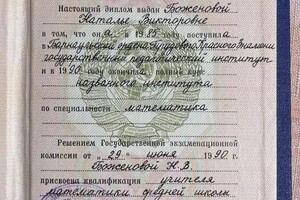 Настоящий диплом выдан Боженовой
Наталье Викторовне
в том, что она в 1985 году поступила
в Барнаульский ордена Трудового Красного Знамени
государственный педагогический институт
и в 1990 году окончила полный курс
названного института
по специальности математика
Решением Государственной экзаменационной
комиссии от "29" июня 1990 г.
Боженовой Н.В.
присвоена квалификация учителя
математики средней школы